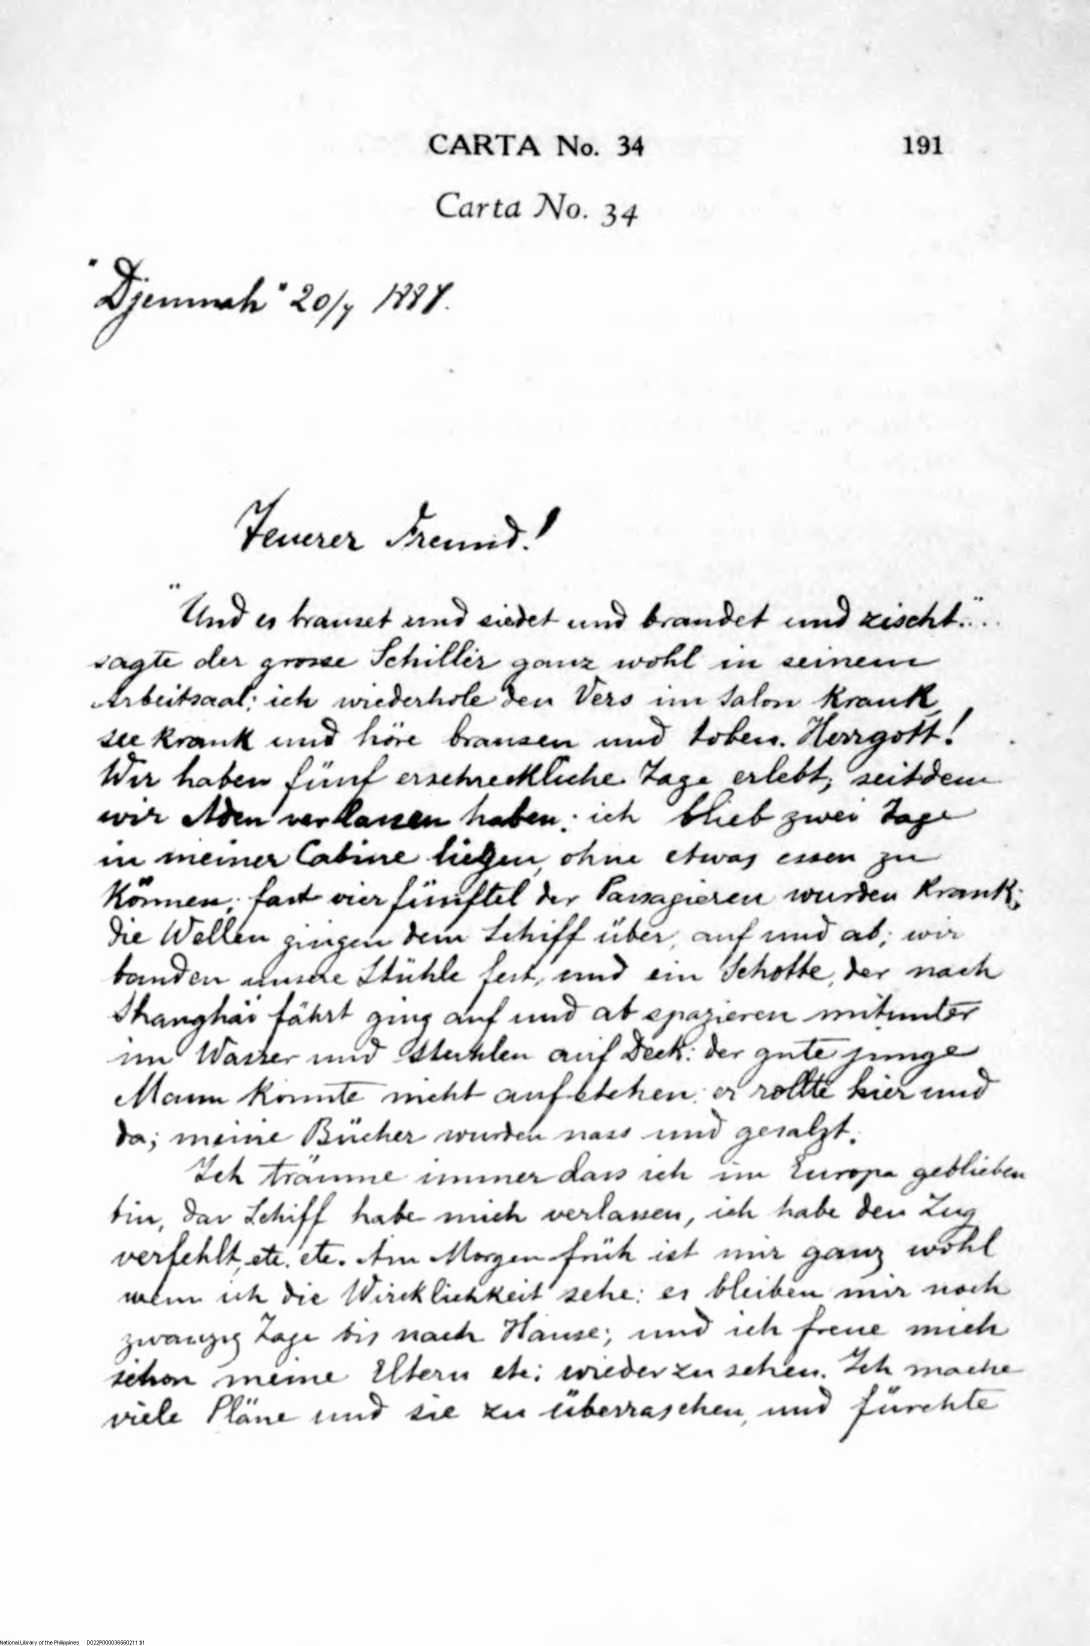 CARTA No. 34 191
Carta No. 34
"Djemnah" 20/7 1887.
Teuerer Freund!
"Und es brauset und siedet und brandet und zischt."...
sagte der grosse Schiller ganz wohl in seinem
Arbeitsaal; ich wiederhole den Vers im Salon krank,
see krank und höre brausen und toben. Herrgott!
Wir haben fünf erschreckliche Tage erlebt, seitdem
wir Aden verlassen haben; ich blieb zwei Tage
in meiner Cabine liegen, ohne etwas essen zu
können; fast vier fünftel der Passagieren wurden krank;
die Wellen gingen dem Schiff über, auf und ab; wir
banden unsere Stühle fest, und ein Schotte, der nach
Shanghäi fährt ging auf und ab spazieren mitunter
im Wasser und auf Deck: der gute junge
Mann konnte nicht aufstehen: er rollte hier und
da; meine Bücher wurden nass und gesalzt.
Ich träume immer dass ich im Europa geblieben
bin, das Schiff habe mich verlassen, ich habe den Zug
verfehlt, etc. etc. Am Morgen früh ist mir ganz wohl
wenn ich die Wircklichkeit sehe: es bleiben mir noch
zwanzig Tage bis nach Hause; und ich freue mich
schon meine Eltern etc: wiederzusehen. Ich mache
viele Pläne und sie zu überraschen, und fürchte
National Library of the Philippines